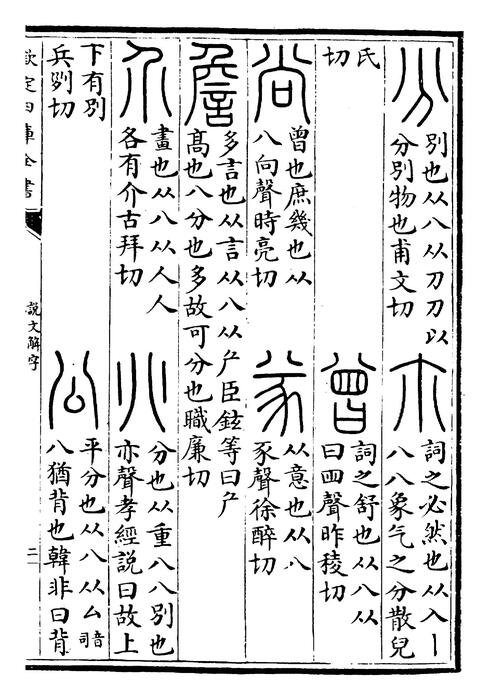 分
別也从八从刀刀以
分別物也甫文切
尒
詞之必然也从入丨
八八象气之分散兒
氏
切
曾
詞之舒也从八从
曰囬聲昨稜切
尚
曾也庶幾也从
八向聲時亮切
㒸
从意也从八
豕聲徐醉切
詹
多言也从言从八从厃臣鉉等曰厃
髙也八分也多故可分也職廉切
介
畫也从八从人人
各有介古拜切
𠔁
分也从重八八別也
亦聲孝經說曰故上
下有別
兵列切
公
平分也从八从厶音司
八猶背也韓非曰背
欽定四庫全書
說文解字
二